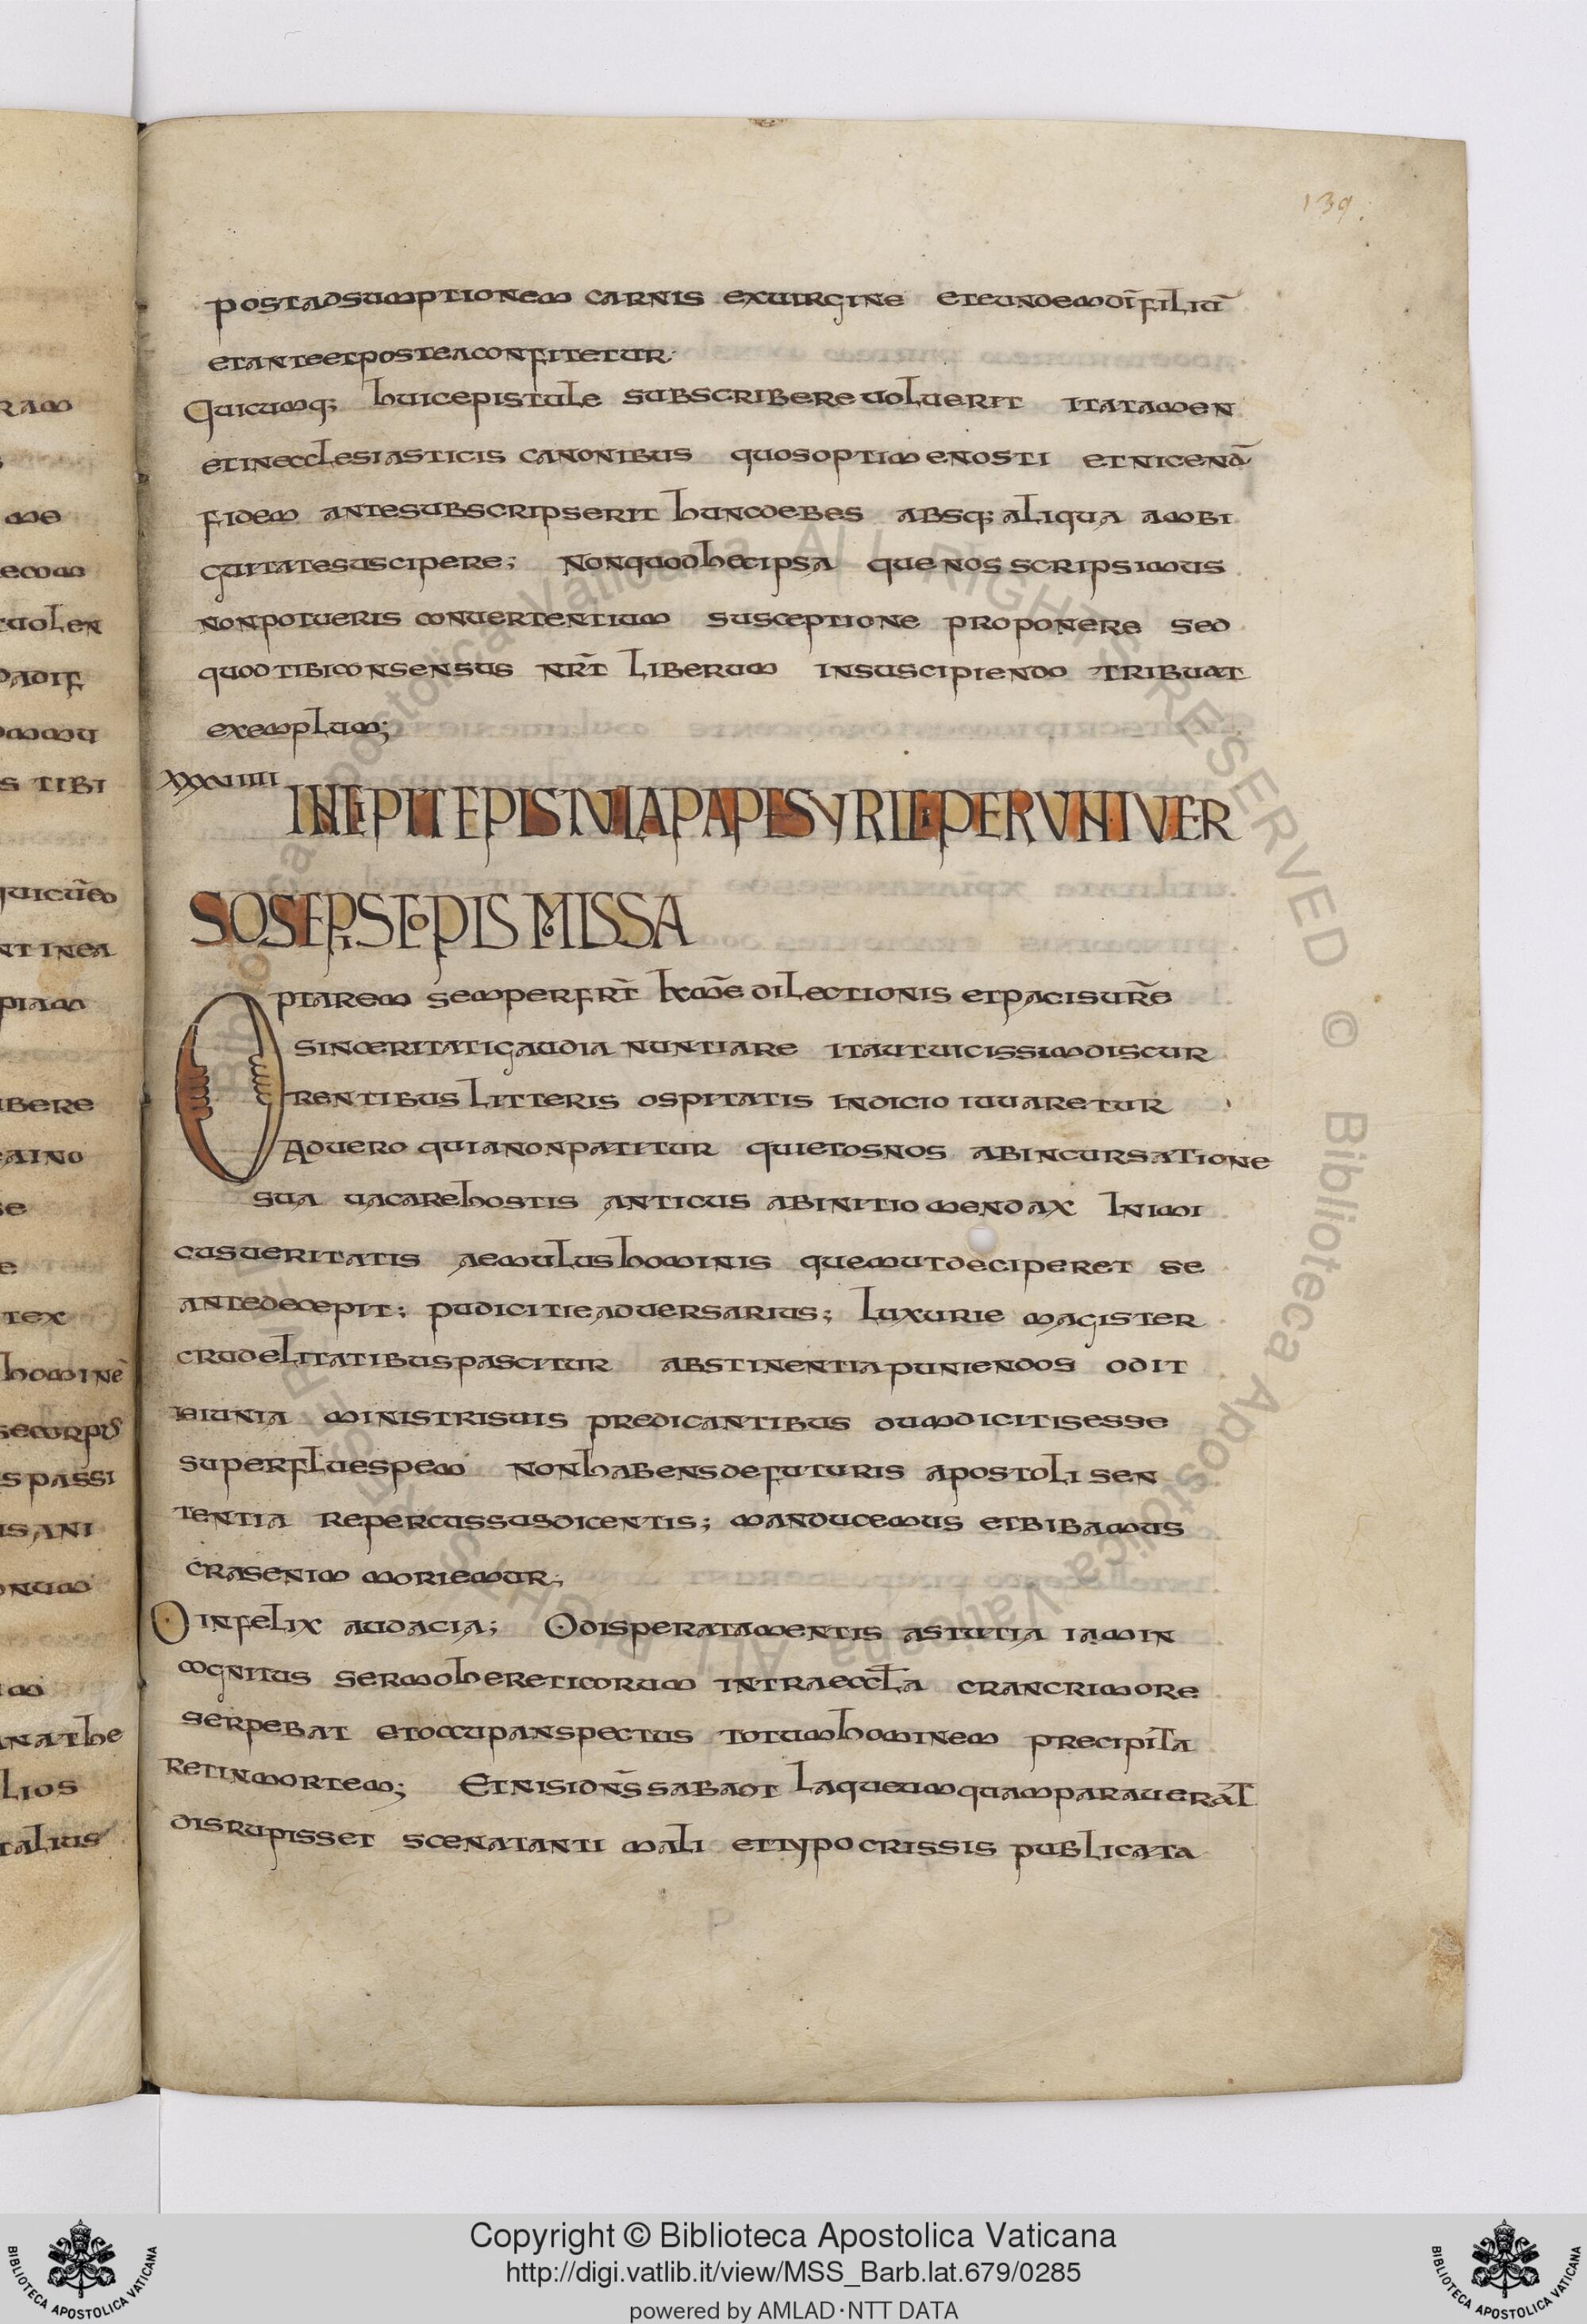 139.
postadsumptionem carnis exuirgine eteundemdi̅filiu̅
etanteetposteaconfitetur·
Quicumq; huicepistule subscribere uoluerit itatamen
etinecclesiasticis canonibus quosoptimenosti etnicena̅
fidem antesubscripserit huncdebes absq; aliqua ambi
guitatesuscipere; nonquodhecipsa que nos scripsimus
nonpotueris conuertentium susceptione proponere sed
quodtibiconsensus nr̅i liberum insuscipiendo tribuat
exemplum;
xxxuiiii
INCIPIT EPISTVLA PAPE SYRII PER VNIVER
SOS EPS EPIS MISSA
Optarem semperfrt̅ kxm̅e dilectionis etpacisur̅e
sinceritatigaudia nuntiare itautuicissimdiscur
rentibus litteris ospitatis indicio iuuaretur
aduero quianonpatitur quietosnos abincursatione
sua uacarehostis anticus abinitio mendax Inimi
cusueritatis aemulushominis quemutdeciperet se
antedecepit: pudicitieaduersarius; luxurie magister
crudelitatibuspascitur abstinentiapuniendos odit
ieiunia ministrisuis predicantibus dumdicitisesse
superfluespem nonhabensdefuturis apostoli sen
tentia repercussusdicentis; manducemus etbibamus
crasenim moriemur;
O infelix audacia; O disperatamentis astutia iamin
cognitus sermohereticorum intraeccl̅a crancrimore
serpebat etoccupanspectus totumhominem precipita
retinmortem; Etnisidn̅s sabaot laqueumquamparauerat
disrupisset scenatanti mali etypocrissis publicata
RAM
me
ecom
uolen
padif
ommu
s tibi
quicu̅eo
ntinea
piam
ibere
aino
se
tex
homine̅
secorpus
s passi
is ani
onum
nathe
lios
talius
Biblioteca Apostolica Vaticana ALL RIGHTS RESERVED © Biblioteca Apostolica Vaticana ALL RIGHTS RESERVED
BIBLIOTECA APOSTOLICA VATICANA
Copyright © Biblioteca Apostolica Vaticana
http://digi.vatlib.it/view/MSS_Barb.lat.679/0285
powered by AMLAD·NTT DATA
BIBLIOTECA APOSTOLICA VATICANA